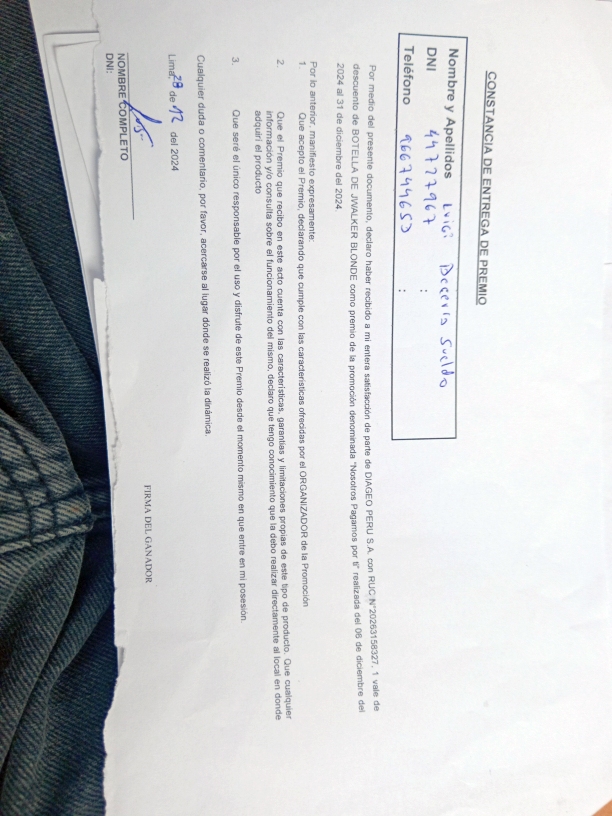 CONSTANCIA DE ENTREGA DE PREMIO
Nombre y Apellidos : Luigi Becerra Sueldo
DNI : 44727967
Teléfono : 966744653
Por medio del presente documento, declaro haber recibido a mi entera satisfacción de parte de DIAGEO PERU S.A. con RUC N°20263158327, 1 vale de
descuento de BOTELLA DE JWALKER BLONDE como premio de la promoción denominada "Nosotros Pagamos por ti" realizada del 06 de diciembre del
2024 al 31 de diciembre del 2024.
Por lo anterior, manifiesto expresamente:
1. Que acepto el Premio, declarando que cumple con las características ofrecidas por el ORGANIZADOR de la Promoción
2. Que el Premio que recibo en este acto cuenta con las características, garantías y limitaciones propias de este tipo de producto. Que cualquier
información y/o consulta sobre el funcionamiento del mismo, declaro que tengo conocimiento que la debo realizar directamente al local en donde
adquirí el producto
3. Que seré el único responsable por el uso y disfrute de este Premio desde el momento mismo en que entre en mi posesión.
Cualquier duda o comentario, por favor, acercarse al lugar dónde se realizó la dinámica.
Lima, 28 de 12 del 2024
FIRMA DEL GANADOR
NOMBRE COMPLETO
DNI: